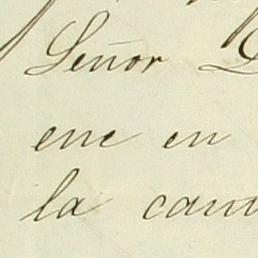 Señor
ene en
la